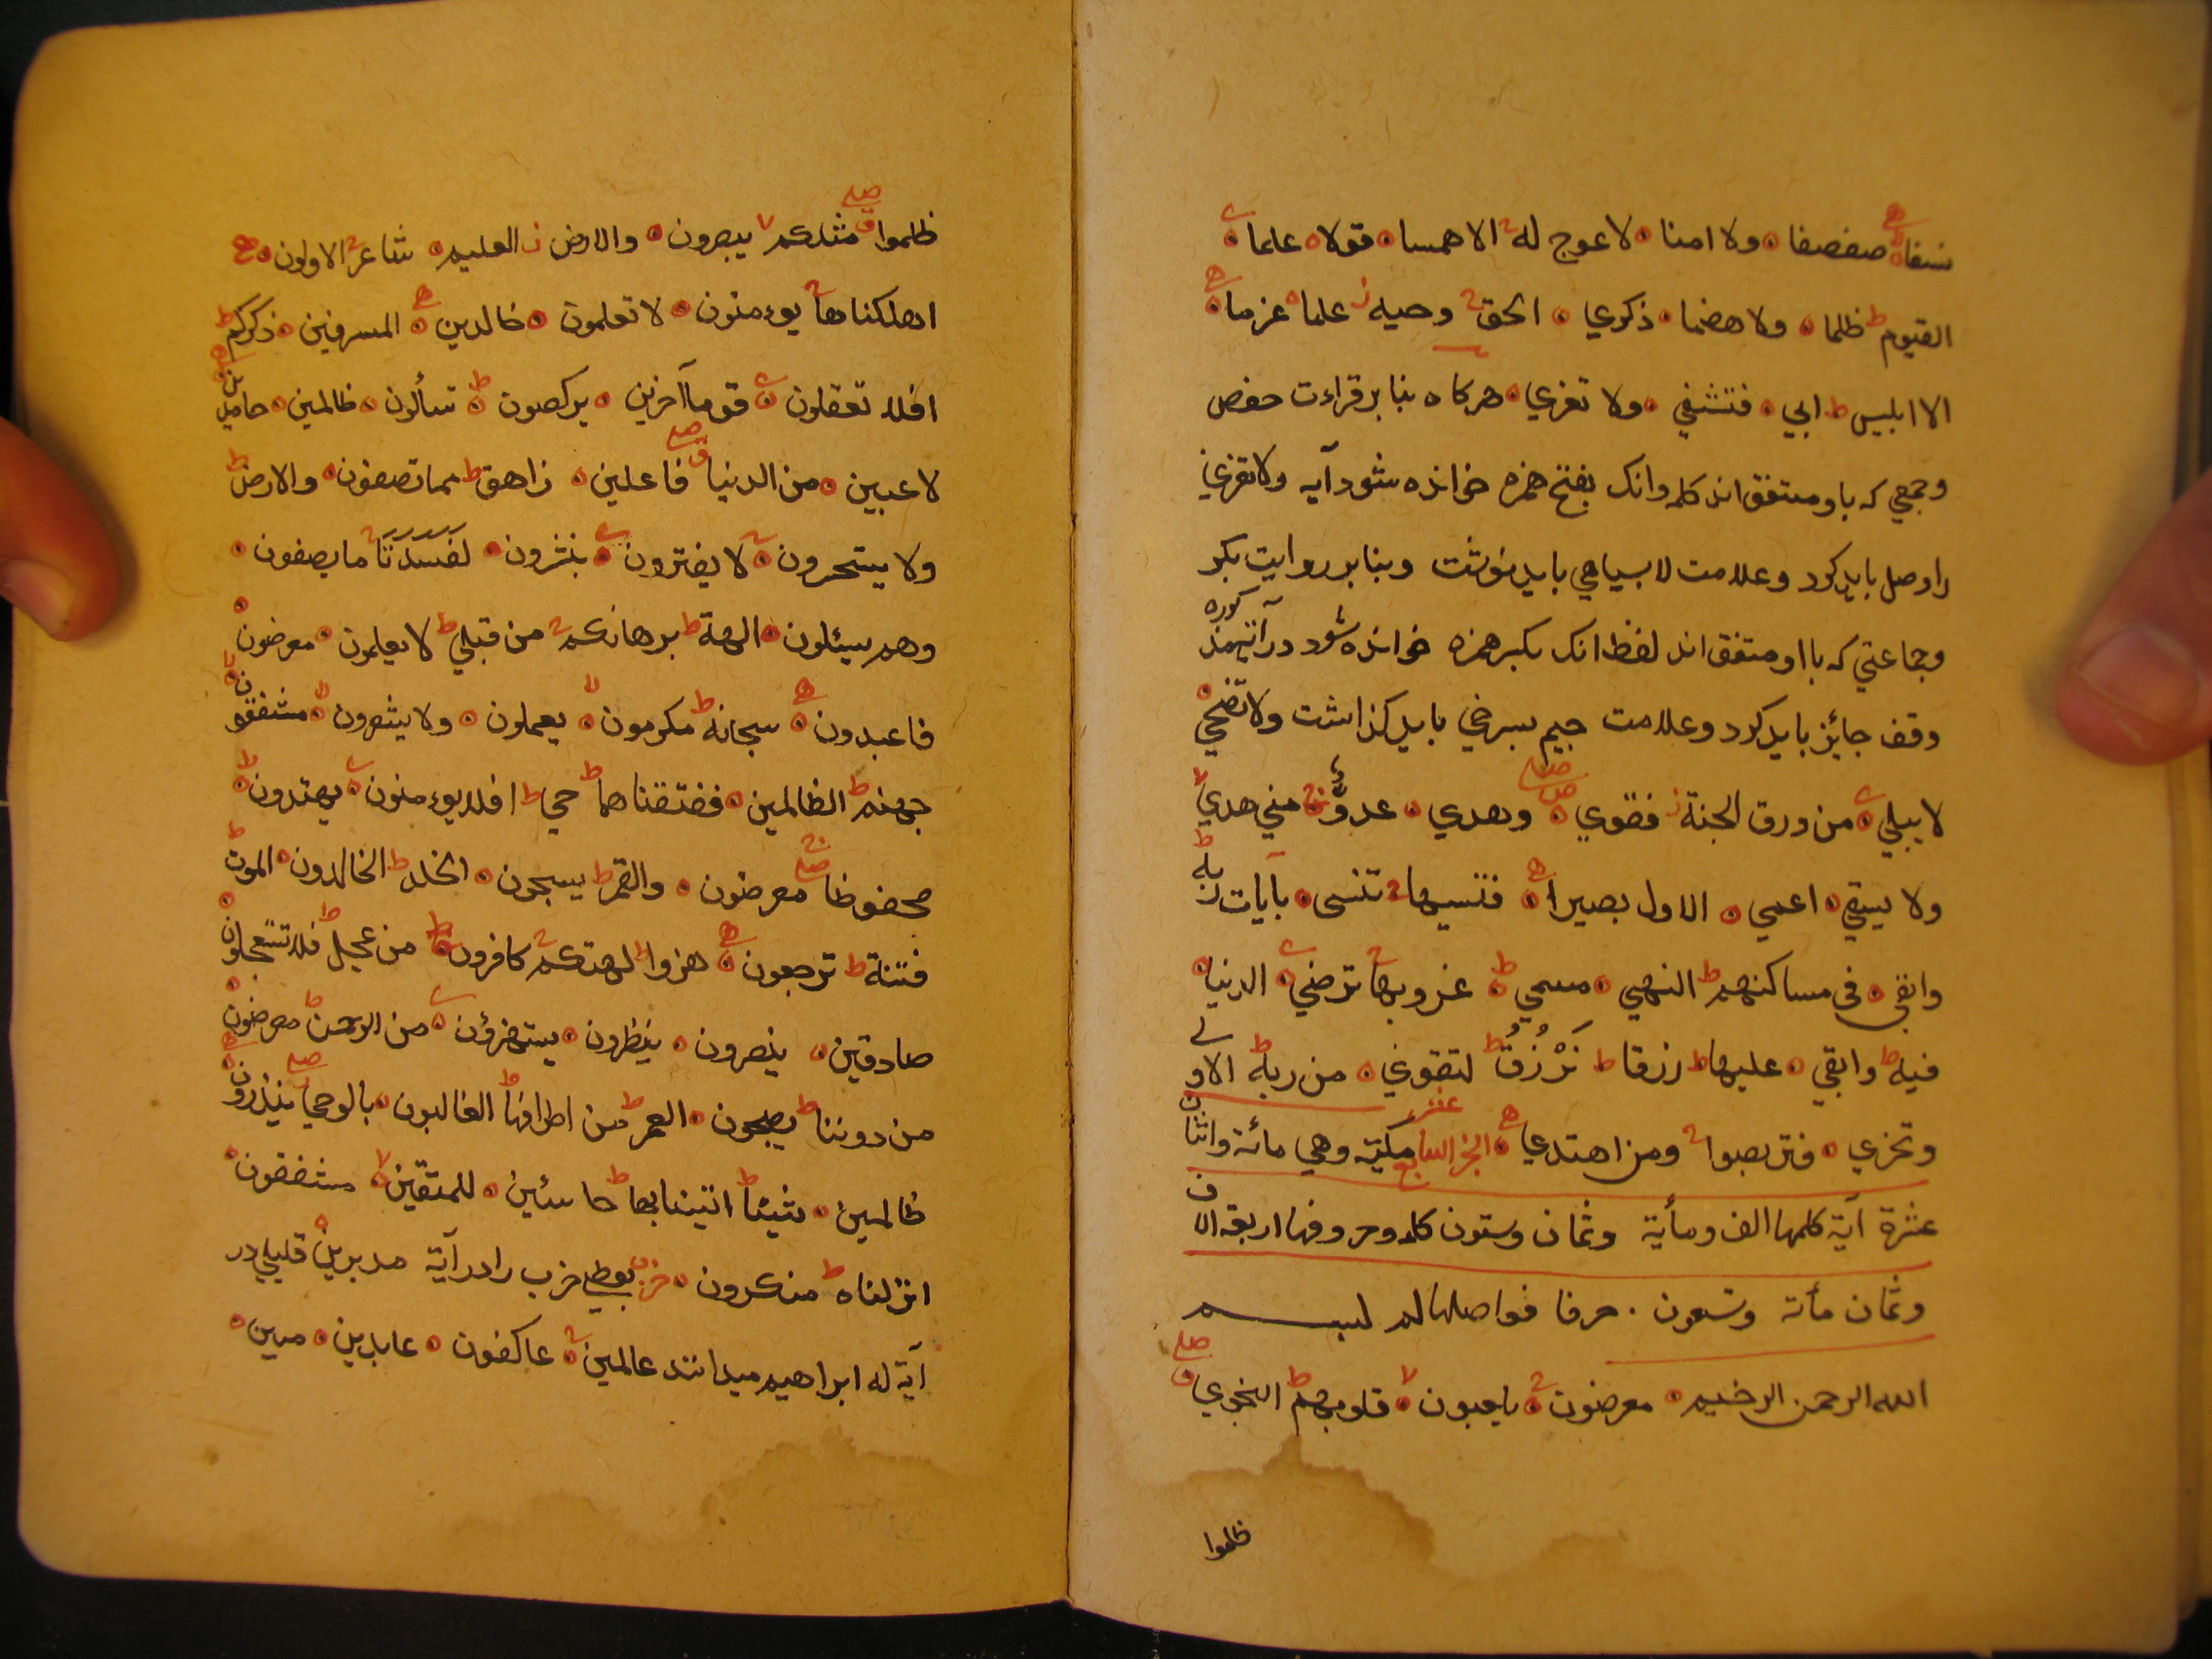 نسفا صفصفا ولا امنا لا عوج له الا همسا قولا علما
القیوم ظلما ولا هضما ذکري الحق وحیه علما عزما
الا ابلیس ابي فتشقي ولا تعري هرکاه بنا بر قراءت حفص
وجمعي که باو متفق اند کلمه وانک بفتح همزه خوانده شود آیه ولا تعري
را وصل باید کرد وعلامت لا بسیاهي باید نوشت وبنا بر روایت بکر
وجماعتي که با او متفق اند لفظ انک بکسر همزه خوانده شود در آیة مذکوره
وقف جائز باید کرد وعلامت جیم بسرخي باید کذاشت ولا تضحي
لا یبلي من ورق الجنة فغوي وهدي عدوٌ مني هدي
ولا یشقي اعمي الاول بصیرا فنسیها تنسى بآیات ربه
وابقي في مساکنهم النهي مسمي غروبها ترضي الدنیا
فیه وابقي علیها رزقا نَرْزُقُ لتقوي من ربه الاولي
وتخزي فتربصوا ومن اهتدي الجزء السابع عشر مکیة وهي مائة واثنا
عشرة آیة کلمها الف ومأیة وثمان وستون کلمه وحروفها اربعة الاف
وثمان مأئة وتسعون حرفا فواصلها لم بسم
الله الرحمن الرحیم معرضون یلعبون قلوبهم النجوي
ظلموا
ظلموا مثلکم تبصرون والارض العلیم شاعر الاولون
اهلکناها یؤمنون لا تعلمون خالدین المسرفین ذکرکم
افلا تعقلون قوماً آخرین یرکضون تسألون ظالمین خامدین
لاعبین من الدنیا فاعلین زاهق مما تصفون والارض
ولا یستحسرون لا یفترون ینشرون لَفَسَدَتَا ما یصفون
وهم یسئلون الهة برهانکم من قبلي لا یعلمون معرضون
فاعبدون سبحانه مکرمون یعملون ولا یشعرون مشفقون
جهنم الظالمین ففتقناهما حي افلا یؤمنون یهتدون
محفوظا معرضون والقمر یسبحون الخلد الخالدون الموت
فتنة ترجعون هزوا الهتکم کافرون من عجل فلا تستعجلون
صادقین ینصرون ینظرون یستهزؤن من الرحمن معرضون
من دوننا یصحبون العمر من اطرافها الغالبون بالوحي ینذرون
ظالمین شیئا اتینا بها حاسبین للمتقین مشفقون
انزلناه منکرون حزب بعضي حزب را در آیة مدبرین قلیلي در
آیة له ابراهیم میدانند عالمین عاکفون عابدین مبین